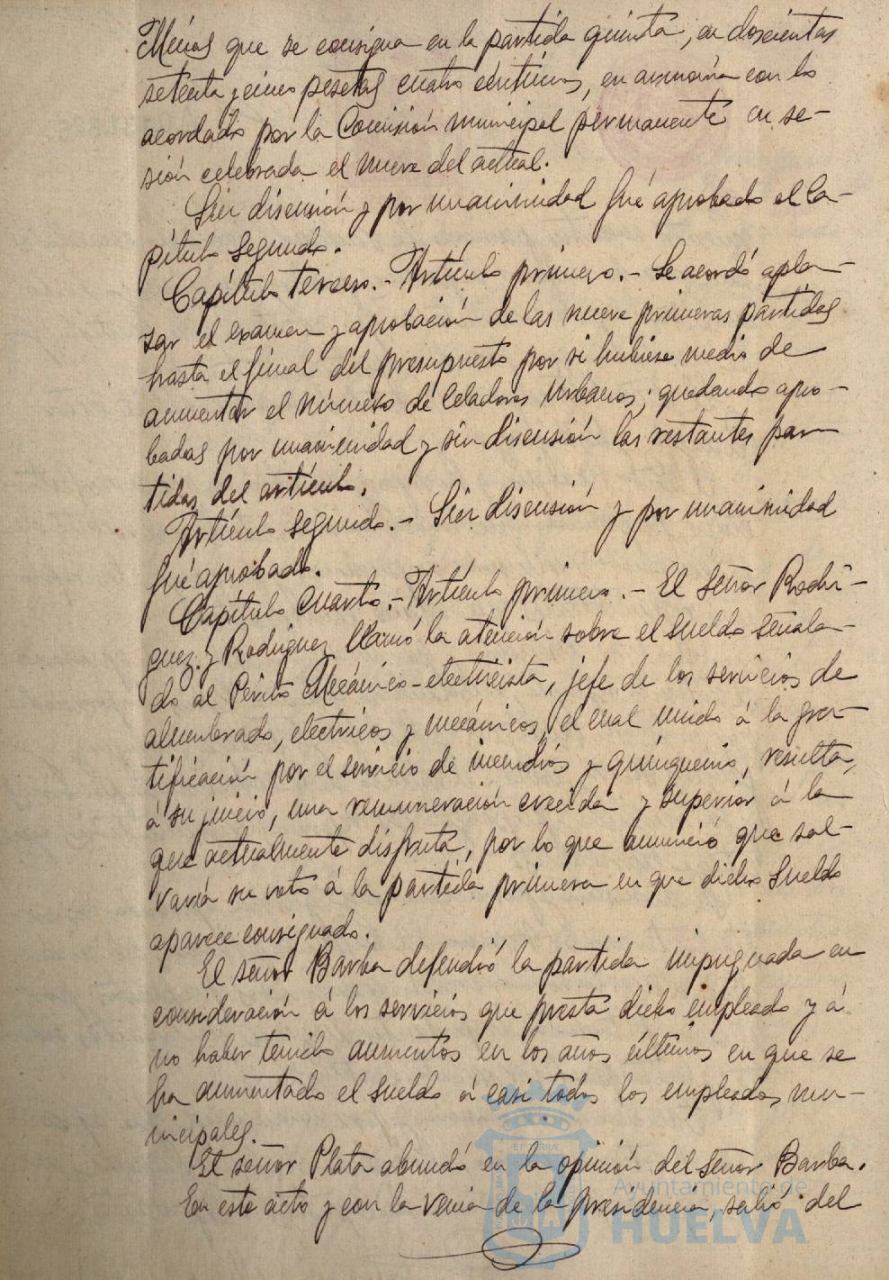 Minas que se consigna en la partida quinta, en doscientas
setenta y cinco pesetas cuatro céntimos, en armonía con lo
acordado por la Comisión municipal permanente en se-
sión celebrada el nueve del actual.
Sin discusión y por unanimidad fué aprobado el Ca-
pítulo segundo.
Capítulo tercero.- Artículo primero.- Se acordó apla-
zar el examen y aprobación de las nueve primeras partidas
hasta el final del presupuesto por si hubiese medio de
aumentar el número de Celadores Urbanos; quedando apro-
badas por unanimidad y sin discusión las restantes par-
tidas del artículo.
Artículo segundo.- Sin discusión y por unanimidad
fué aprobado.
Capítulo cuarto.- Artículo primero.- El señor Rodrí-
guez y Rodriguez llamó la atención sobre el sueldo señala-
do al Perito Mecánico-electricista, jefe de los servicios de
alumbrado, electricos y mecánicos, el cual unido á la gra-
tificación por el servicio de incendios y quinquenio, resulta,
á su juicio, una remuneración crecida y superior á la
que actualmente disfruta, por lo que anunció que sal-
varía su voto á la partida primera en que dicho sueldo
aparece consignado.
El señor Barba defendió la partida impugnada en
consideración á los servicios que presta dicho empleado y á
no haber tenido aumentos en los años últimos en que se
ha aumentado el sueldo á casi todos los empleados mu-
nicipales.
El señor Plata abundó en la opinión del señor Barba.
En este acto y con la venia de la presidencia, salió del
Ayuntamiento de
HUELVA